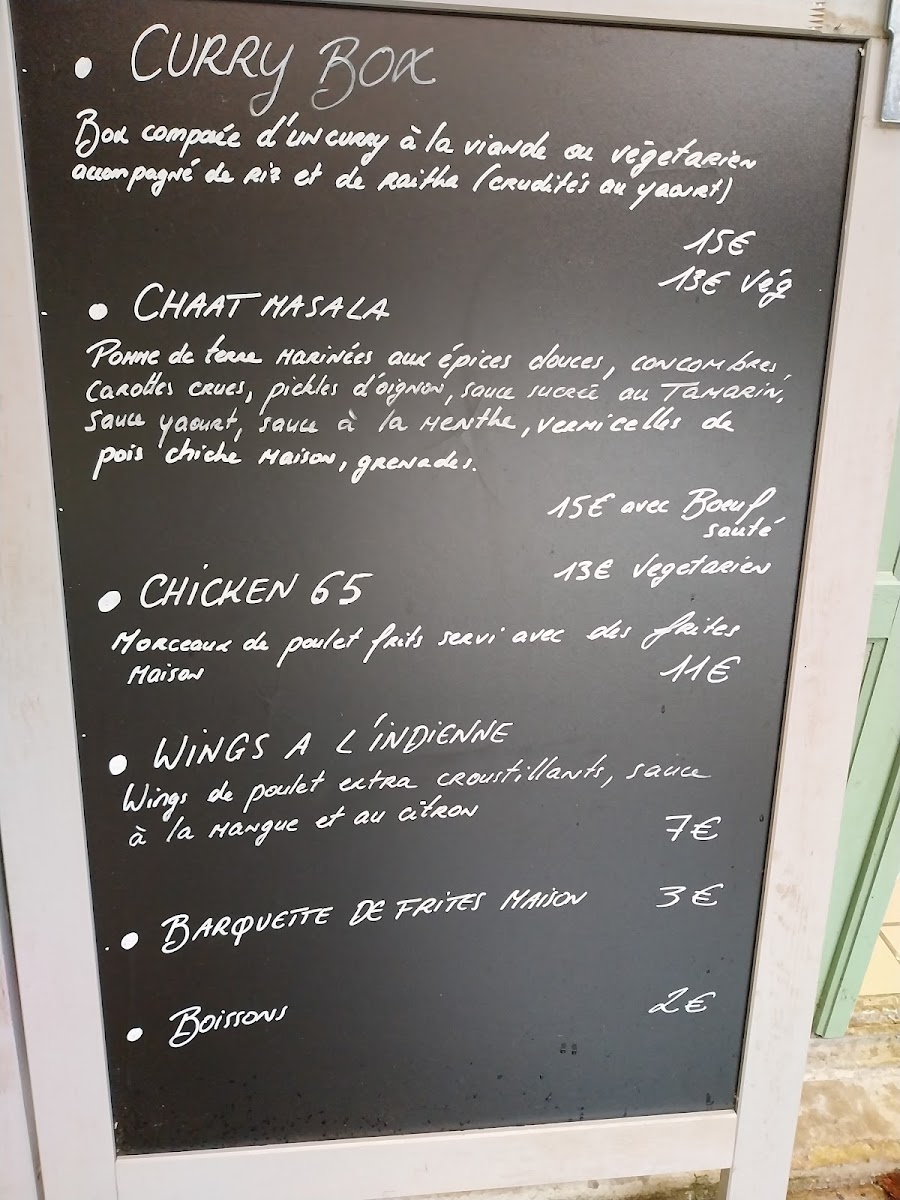 • CURRY BOX
Box composée d'un curry à la viande ou végetarien
accompagné de riz et de raitha (crudités au yaourt)
15€
13€ vég
• CHAAT MASALA
Pomme de terre marinées aux épices douces, concombres,
carottes crues, pickles d'oignon, sauce sucrée au Tamarin,
sauce yaourt, sauce à la menthe, vermicelles de
pois chiche maison, grenades.
15€ avec Boeuf
sauté
13€ Vegetarien
• CHICKEN 65
Morceaux de poulet frits servi avec des frites
maison 11€
• WINGS A L'INDIENNE
Wings de poulet extra croustillants, sauce
à la mangue et au citron
7€
• BARQUETTE DE FRITES MAISON 3€
• Boissons 2€